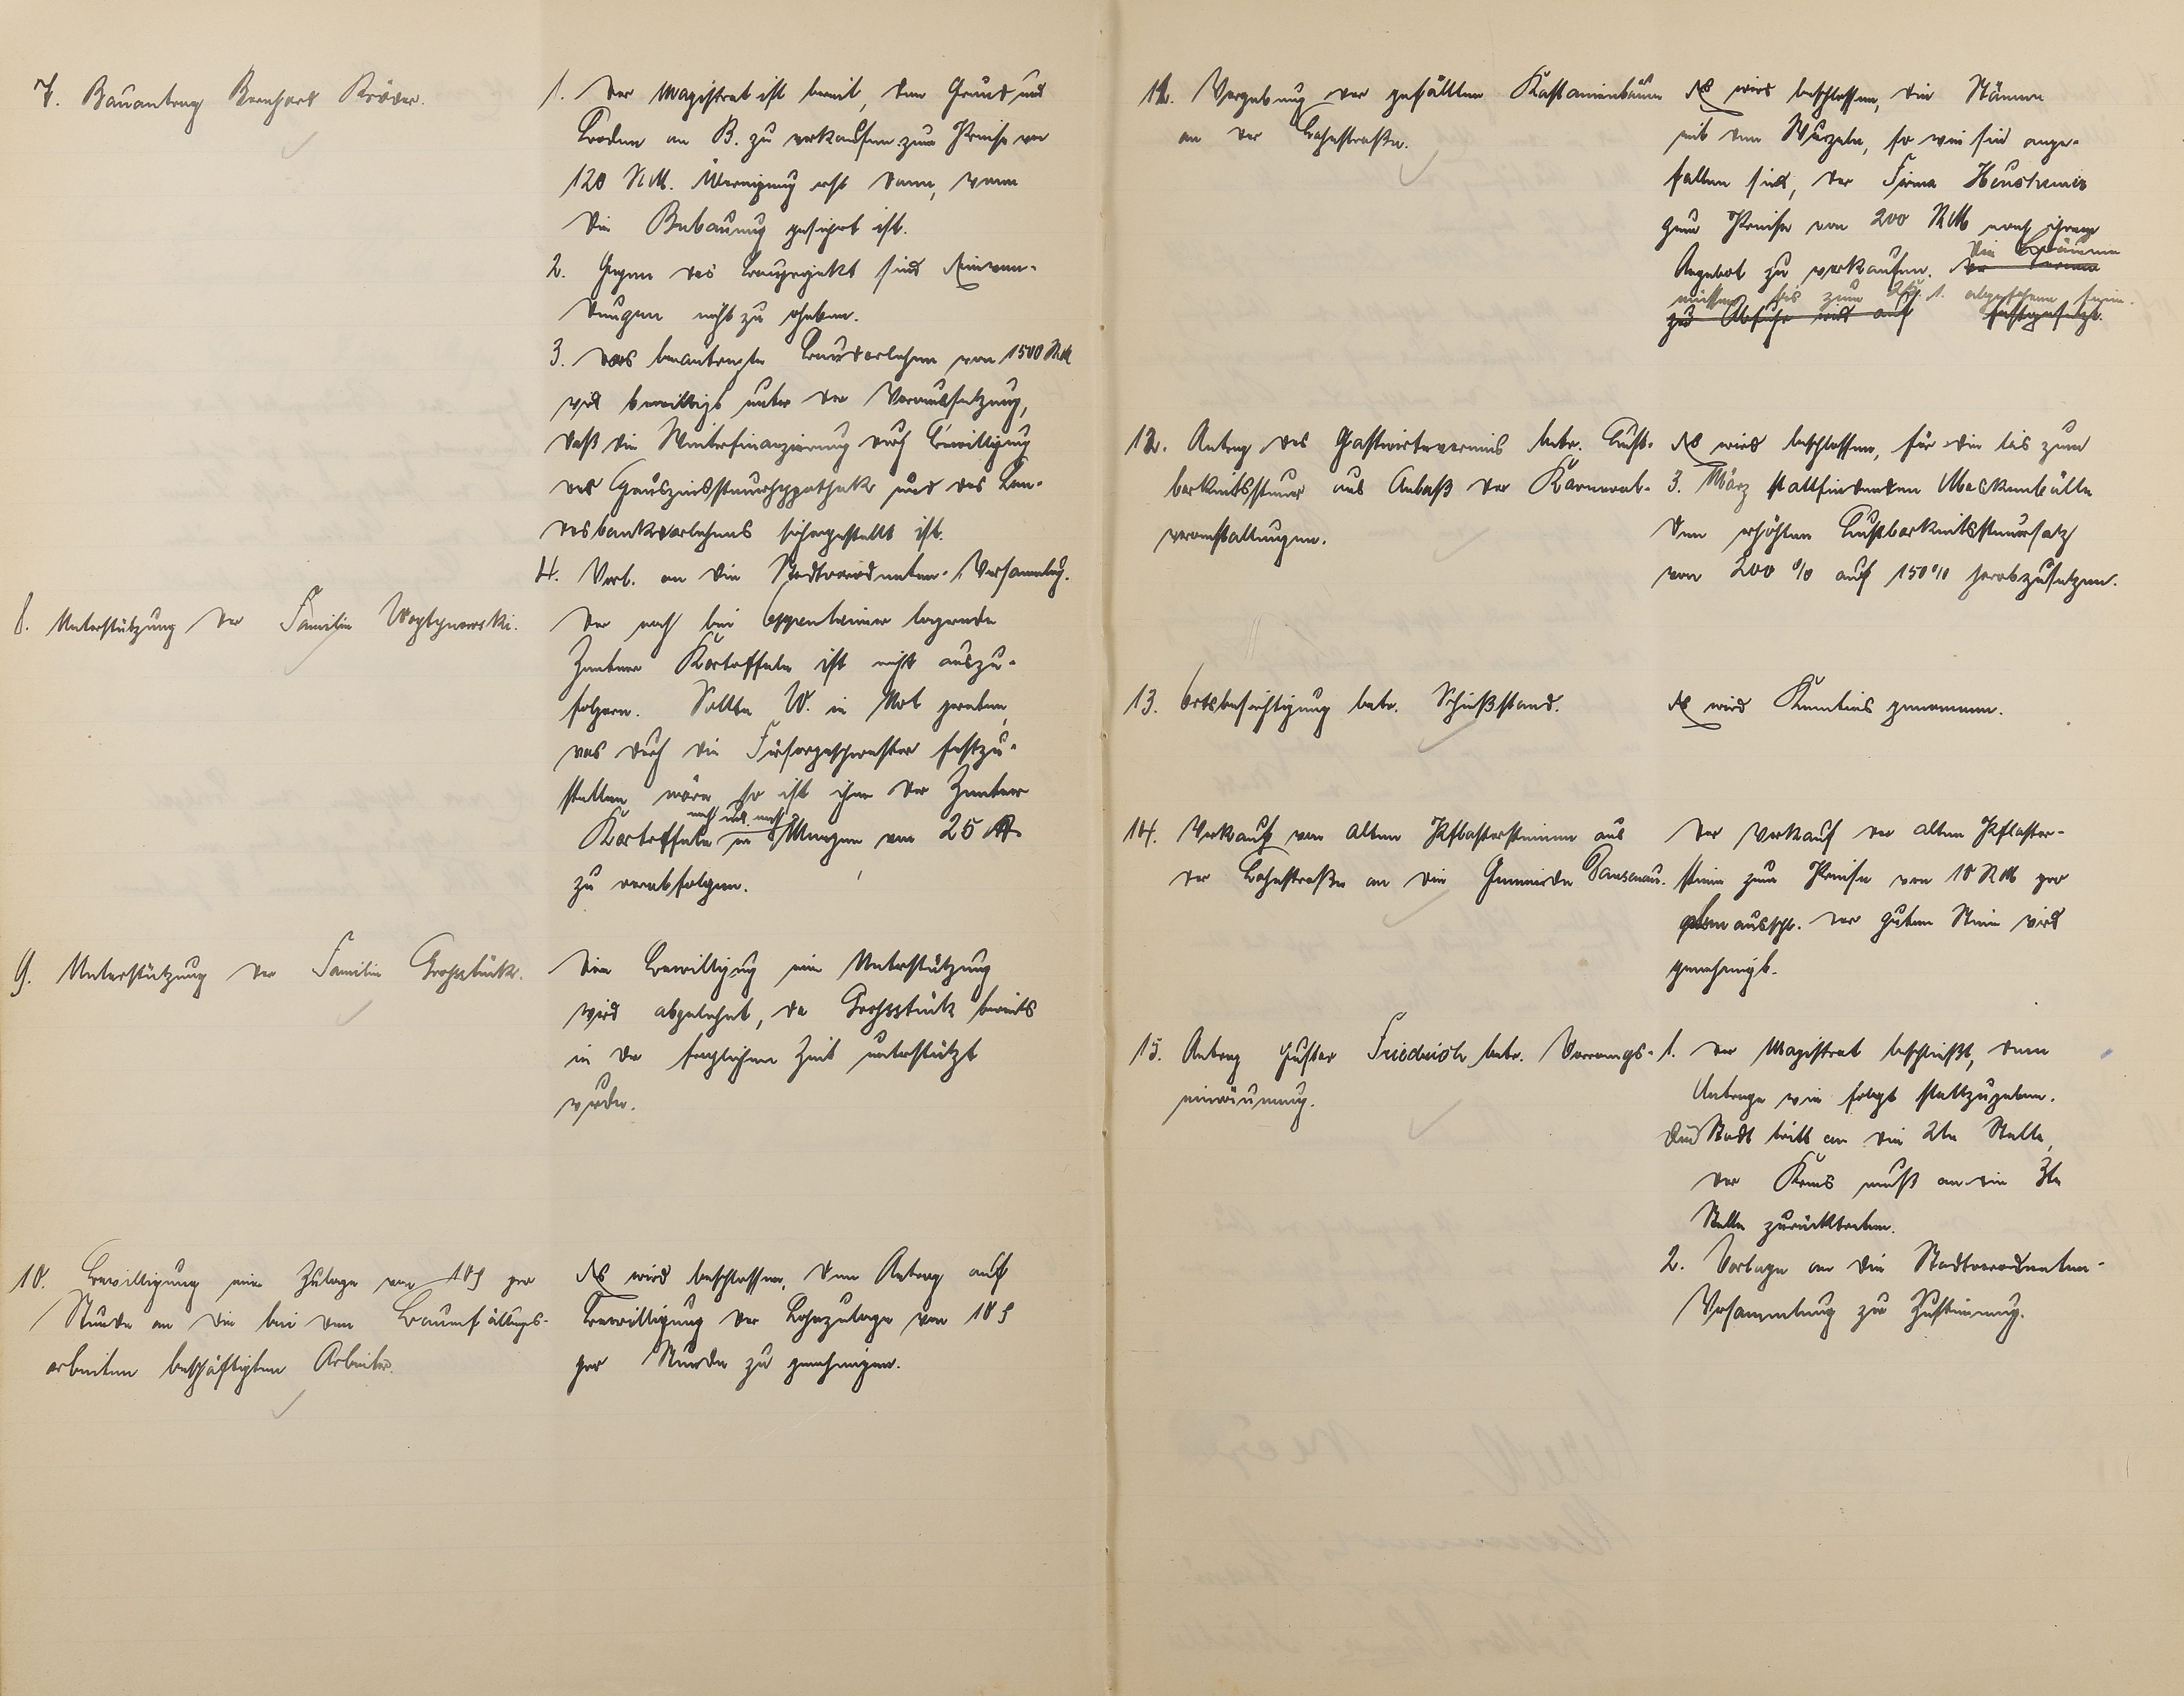 7. Bauantrag Bernhard Kröder.
1. Der Magistrat ist bereit, den Grund und
Boden an B. zu verkaufen zum Preise von
120 RM. Übereignung erst dann, wenn
die Bebauung gesichert ist.
2. Gegen das Bauprojekt sind Einwen-
dungen nicht zu erheben.
3. Das beantragte Baudarlehen von 1500 RM
wird bewilligt unter der Voraussetzung,
daß die Weiterfinanzierung durch Bewilligung
der Hauszinssteuerhypothek und des Lan-
desbankdarlehens sichergestellt ist.
4. Vorl. an die Stadtverordneten-Versammlg.
8. Unterstützung der Familie
Der noch bei Oppenheimer lagernde
Zentner Kartoffeln ist nicht auszu-
folgern. Sollte W. in Not geraten,
was durch die Fürsorgeschwester festzu-
stellen wäre, so ist ihm der Zentner
nach und nach
Kartoffeln in Mengen von 25 ℔
zu verabfolgen.
9. Unterstützung der Familie Grohsstück.
Die Bewilligung einer Unterstützung
wird abgelehnt, da Grohsstück bereits
in der fraglichen Zeit unterstützt
wurde.
10. Bewilligung einer Zulage von 10 ₰ per
Stunde an die bei den Baumfällungs-
arbeiten beschäftigten Arbeiter.
Es wird beschlossen, dem Antrag auf
Bewilligung der Lohnzulage von 10 ₰
per Stunde zu genehmigen.
11. Vergebung der gefällten Kastanienbäume
an der Lahnstraße.
Es wird beschlossen, die Stämme
mit den Wurzeln, so wie sie ange-
fallen sind, der Firma
zum Preise von 200 RM nach ihrem
Angebot zu verkaufen. Die Bäume
müssen bis zum 1. abgefahren sein.
zur Abfuhr wird auf festgesetzt.
12. Antrag des Gastwirtevereins betr. Lust-
barkeitssteuer aus Anlaß der Karneval-
veranstaltungen.
Es wird beschlossen, für die bis zum
3. März stattfindenden Maskenbälle
den erhöhten Lustbarkeitssteuersatz
von 200 % auf 150 % herabzusetzen.
13. Ortsbesichtigung betr. Schießstand.
Es wird Kenntnis genommen.
14. Verkauf von alten Pflastersteinen aus
der Lahnstraße an die Gemeinde Dausenau.
Der Verkauf der alten Pflaster-
steine zum Preise von 10 RM per
cbm ausschl. der guten Steine wird
genehmigt.
15. Antrag Gustav Friedrich betr. Vorrangs-
einräumung.
1. Der Magistrat beschließt, dem
Antrage wie folgt stattzugeben.
Die Stadt tritt an die 2te Stelle,
der Kreis muß an die 3te
Stelle zurücktreten.
2. Vorlage an die Stadtverordneten-
Versammlung zur Zustimmung.